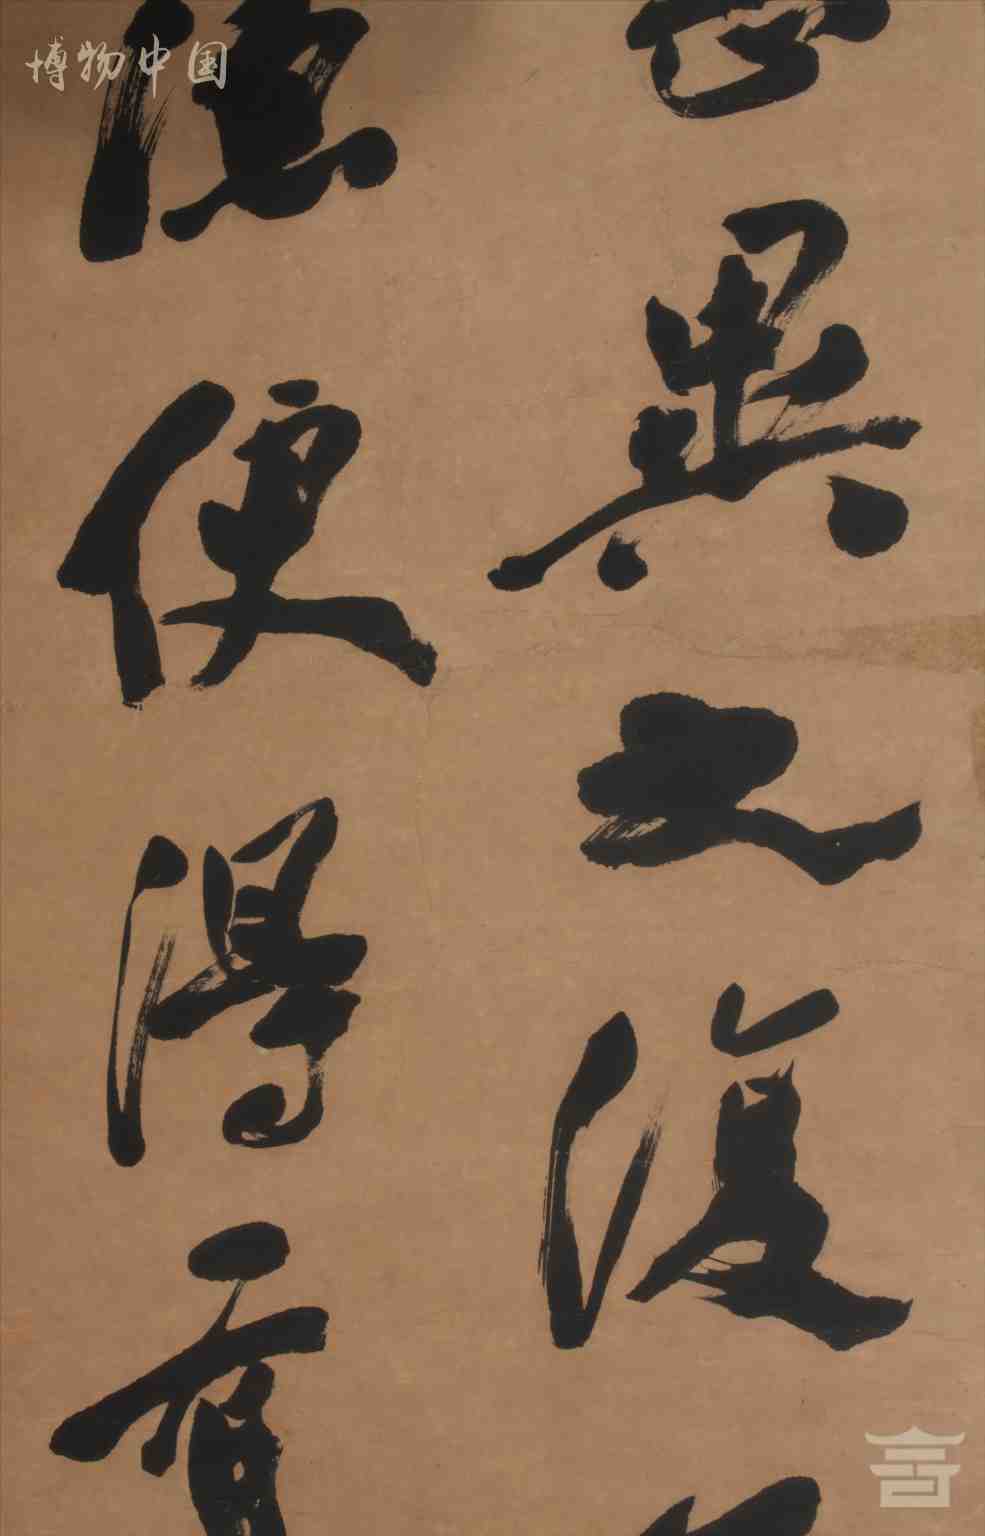 博物中国
異之復
源便得